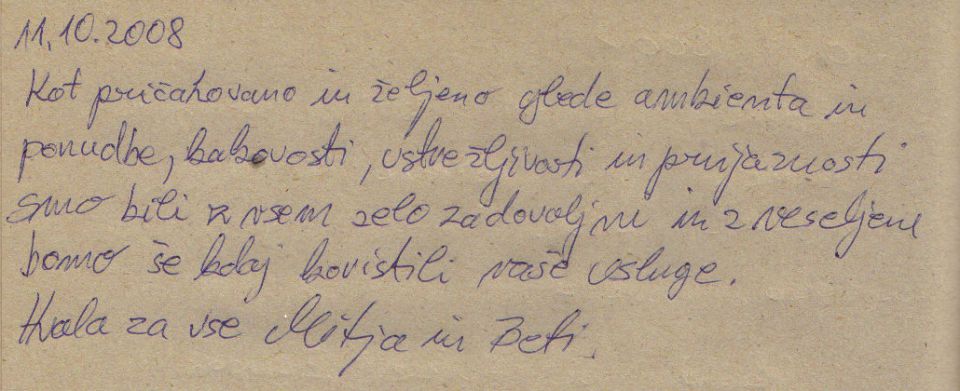 11.10.2008
Kot pričakovano in željeno glede ambienta in
ponudbe, kakovosti, ustrežljivosti in prijaznosti
smo bili z vsem zelo zadovoljni in z veseljem
bomo še kdaj koristili vaše usluge.
Hvala za vse Mitja in Beti.